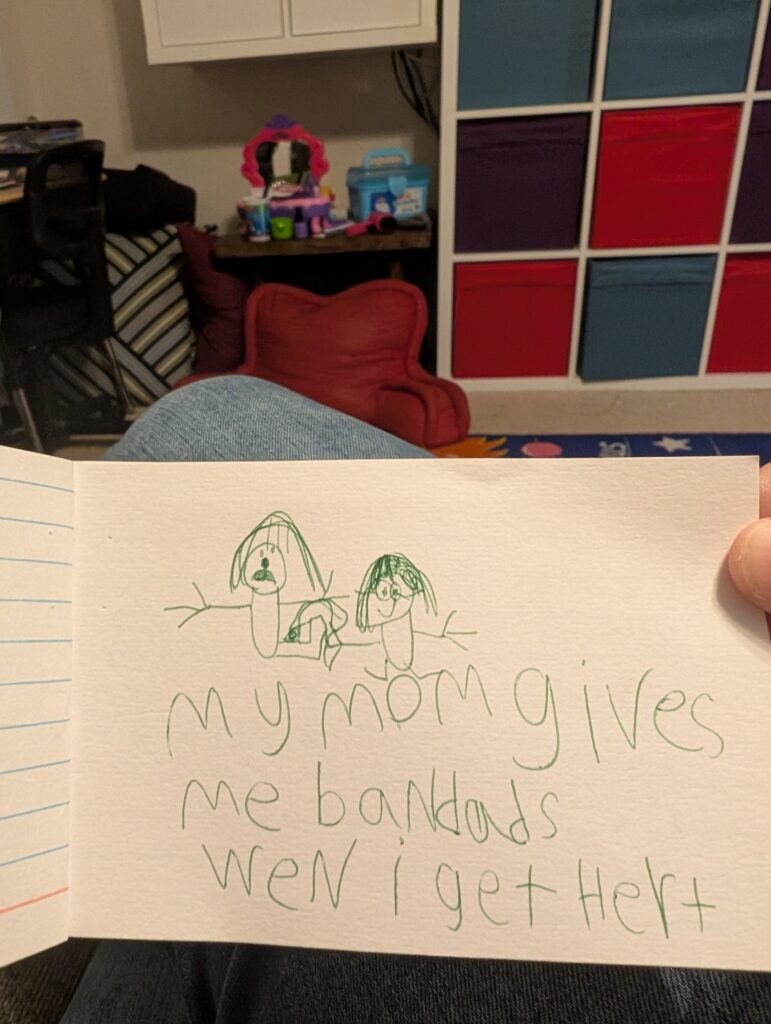 my mom gives
me bandads
weN i get Hert